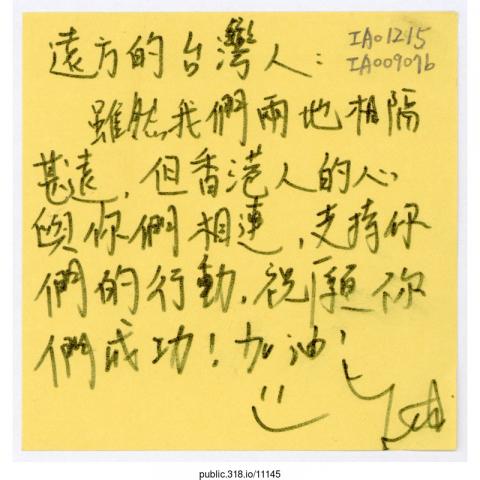 遠方的台灣人：
IA01215
IA009076
雖然我們兩地相隔
甚遠，但香港人的心
與你們相連，支持你
們的行動，祝願你
們成功！加油！
public.318.io/11145